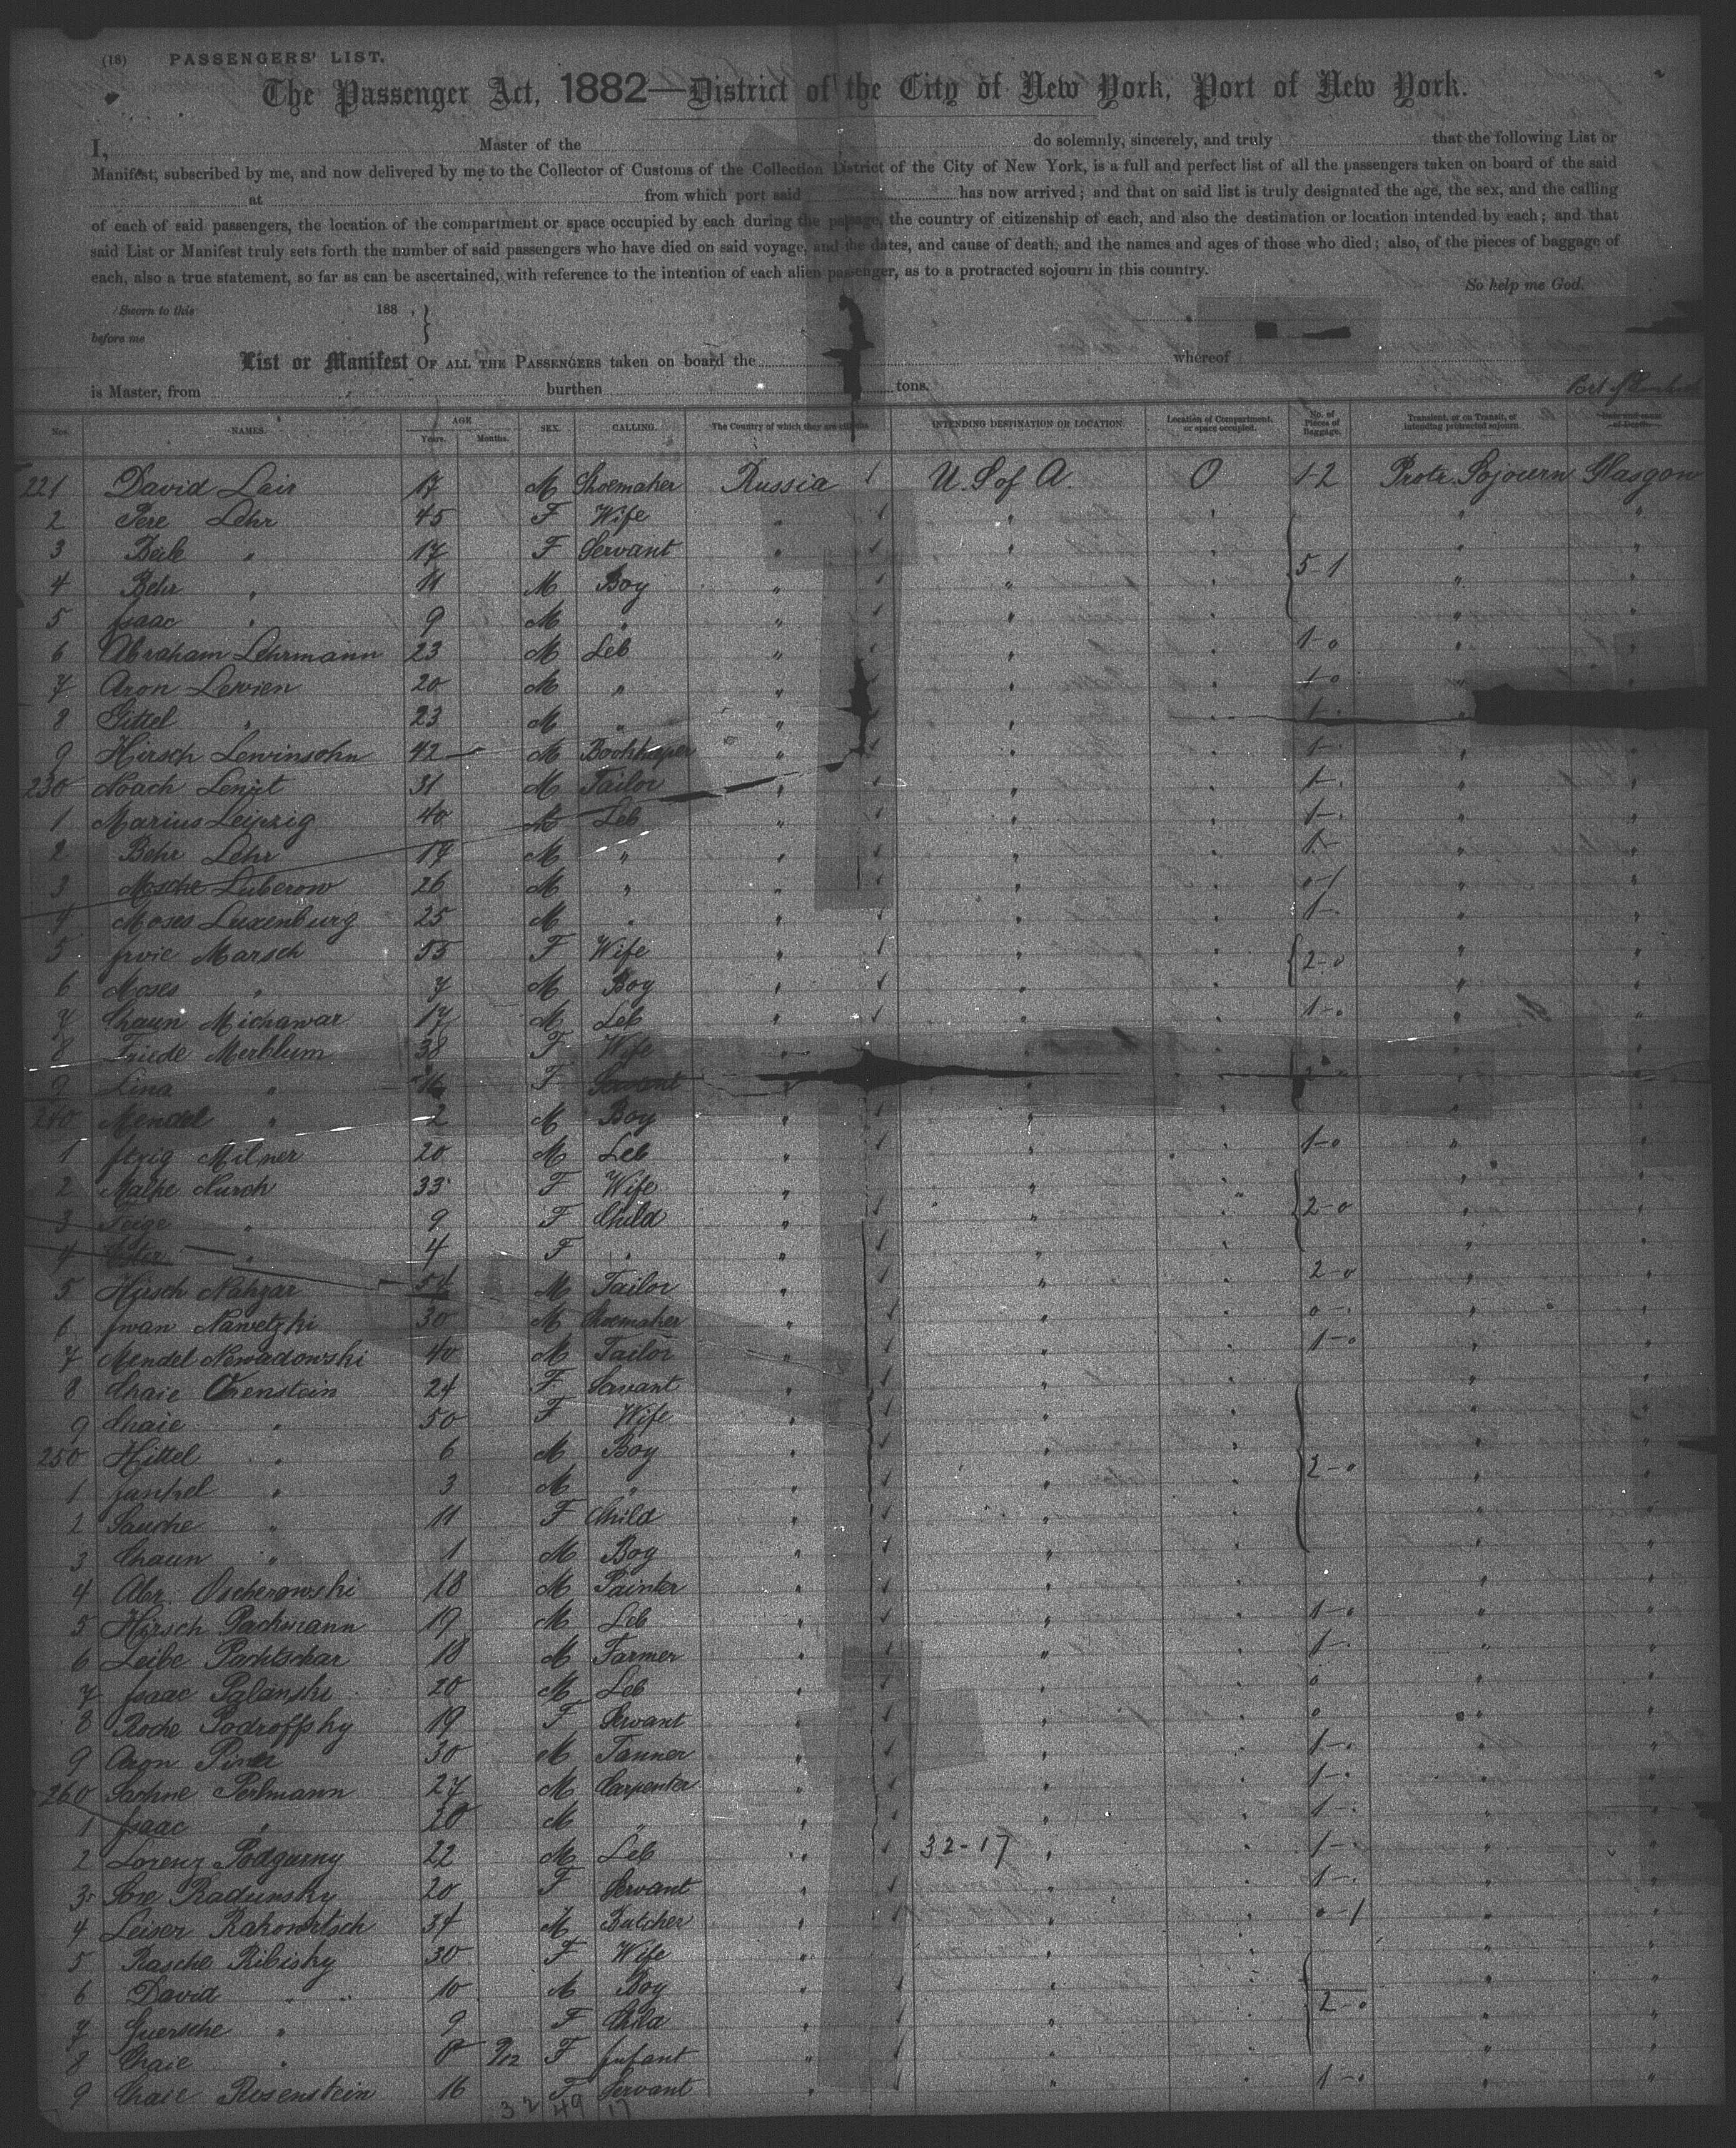 (18) PASSENGERS' LIST.
The Passenger Act, 1882—District of the City of New York, Port of New York.
I, Master of the do solemnly, sincerely, and truly that the following List or
Manifest, subscribed by me, and now delivered by me to the Collector of Customs of the Collection District of the City of New York, is a full and perfect list of all the passengers taken on board of the said
at from which port said has now arrived; and that on said list is truly designated the age, the sex, and the calling
of each of said passengers, the location of the compartment or space occupied by each during the passage, the country of citizenship of each, and also the destination or location intended by each; and that
said List or Manifest truly sets forth the number of said passengers who have died on said voyage, and the dates, and cause of death, and the names and ages of those who died; also, of the pieces of baggage of
each, also a true statement, so far as can be ascertained, with reference to the intention of each alien passenger, as to a protracted sojourn in this country.
So help me God.
Sworn to this 188 ,
before me
List or Manifest OF ALL THE PASSENGERS taken on board the whereof
is Master, from burthen tons. Port of
Nos. NAMES. AGE Years. Months. SEX. CALLING. The Country of which they are citizens INTENDING DESTINATION OR LOCATION Location of Compartment, or space occupied. No. of Pieces of Baggage. Transient, or on Transit, or intending protracted sojourn Date and cause of Death.
221 David Lair 17 M Shoemaker Russia U. S of A. O 1-2 Protr. Sojourn Glasgow
2 Pere Lehr 45 F Wife " " " " "
3 " 17 F Servant " " " " "
4 Behr " 11 M Boy " " " 5-1 " "
5 Isaac " 9 M " " " " " "
6 Abraham Lehrmann 23 M Leb " " " 1-0 " "
7 Aron Lewien 20 M " " " " 1-0 "
8 Gittel " 23 M " " " " 1- "
9 Hirsch Lewinsohn 42 M Bookkeeper " " " 1-. " "
230 Noach 31 M Tailor " " " 1-. " "
1 Marius Leipzig 40 M Leb " " " 1-. " "
2 Behr Lehr 19 M " " " " 1- " "
3 Mosche Luberow 26 M " " " " 0-1 " "
4 Moses Luxenburg 25 M " " " " 1- " "
5 Marsch 55 F Wife " " " 2-0 " "
6 Moses " 7 M Boy " " " " "
7 Chaun Michawar 17 M Leb " " " 1-0 " "
8 Friede Merklum 38 F Wife " " " " "
9 Lina " F Servant " " " " "
240 Mendel " 2 M Boy " " " " "
1 Itzig Milner 20 M Leb " " " 1-0 " "
2 Malke Nurch 33 F Wife " " " " "
3 Feige " 9 F Child " " " 2-0 " "
4 " 4 F " " " " " "
5 Hirsch Nahzar 54 M Tailor " " " 2-0 " "
6 Iwan Nawetzki 30 M Shoemaker " " " 0-. " "
7 Mendel Newadowski 40 M Tailor " " " 1-0 " "
8 Chaie Orenstein 24 F Servant " " " " "
9 Chaie " 50 F Wife " " " " "
250 Hittel " 6 M Boy " " " 2-0 " "
1 Jankel " 3 M " " " " " "
2 " 11 F Child " " " " "
3 Chaun " 1 M Boy " " " " "
4 Abr. Oscherowski 18 M Painter " " " " "
5 Hirsch Packmann 19 M Leb " " " 1-0 " "
6 Leibe Pachtschar 18 M Farmer " " " 1-. " "
7 Isaac Palanski 20 M Leb " " " 0 " "
8 Roche Podroffsky 19 F Servant " " " 0 " "
9 Aron 30 M Tanner " " " 1-. " "
260 Sachne Perlmann 27 M Carpenter " " " 1-. " "
1 Isaac " 20 M " " " " 1-. " "
2 Lorenz Podgurny 22 M Leb " 32-17 " " 1-. " "
3 Sore Radunsky 20 F Servant " " " 1-. " "
4 Leiser Rakowitsch 34 M Butcher " " " 0-1 " "
5 Rasche Ribisky 30 F Wife " " " " "
6 David " 10 M Boy " " " 2-0 " "
7 " 9 F Child " " " " "
8 Chaie " 0 9/12 F Infant " " " " "
9 Chaie Rosenstein 16 F Servant " " " 1-0 " "
32 49 17